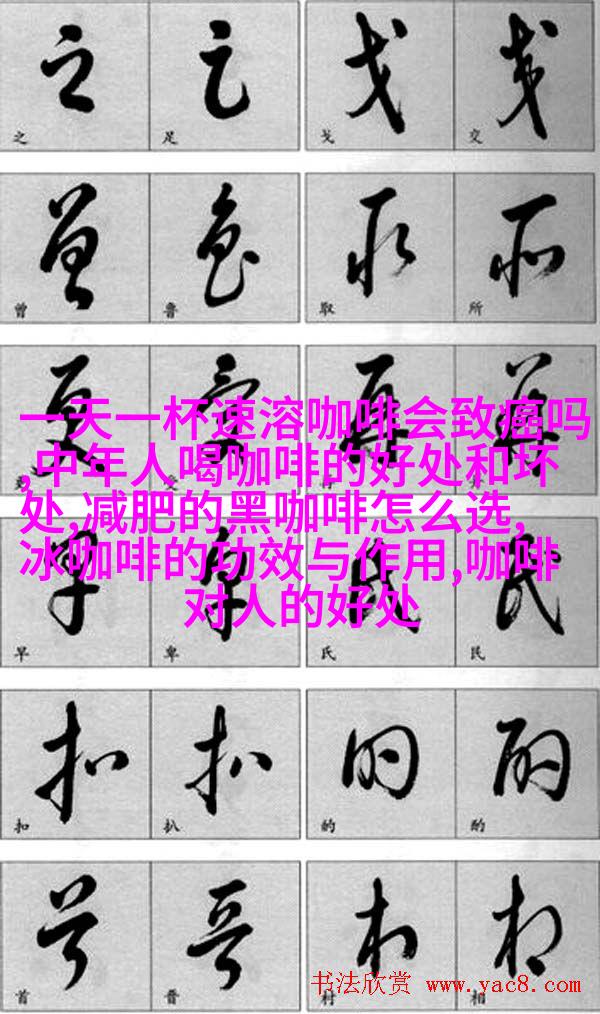 之 足 戈 交
曾 鲁 取 所
一天一杯速溶咖啡会致癌吗
,中年人喝咖啡的好处和坏
处,减肥的黑咖啡怎么选,
冰咖啡的功效与作用,咖啡
对人的好处
早 卑 氏 民
扣 扒 的 酌
首 晋 村 相
书法欣赏 www.yac8.com